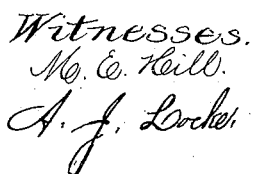 Witnesses.
M. E. Hill.
A. J. Locke.